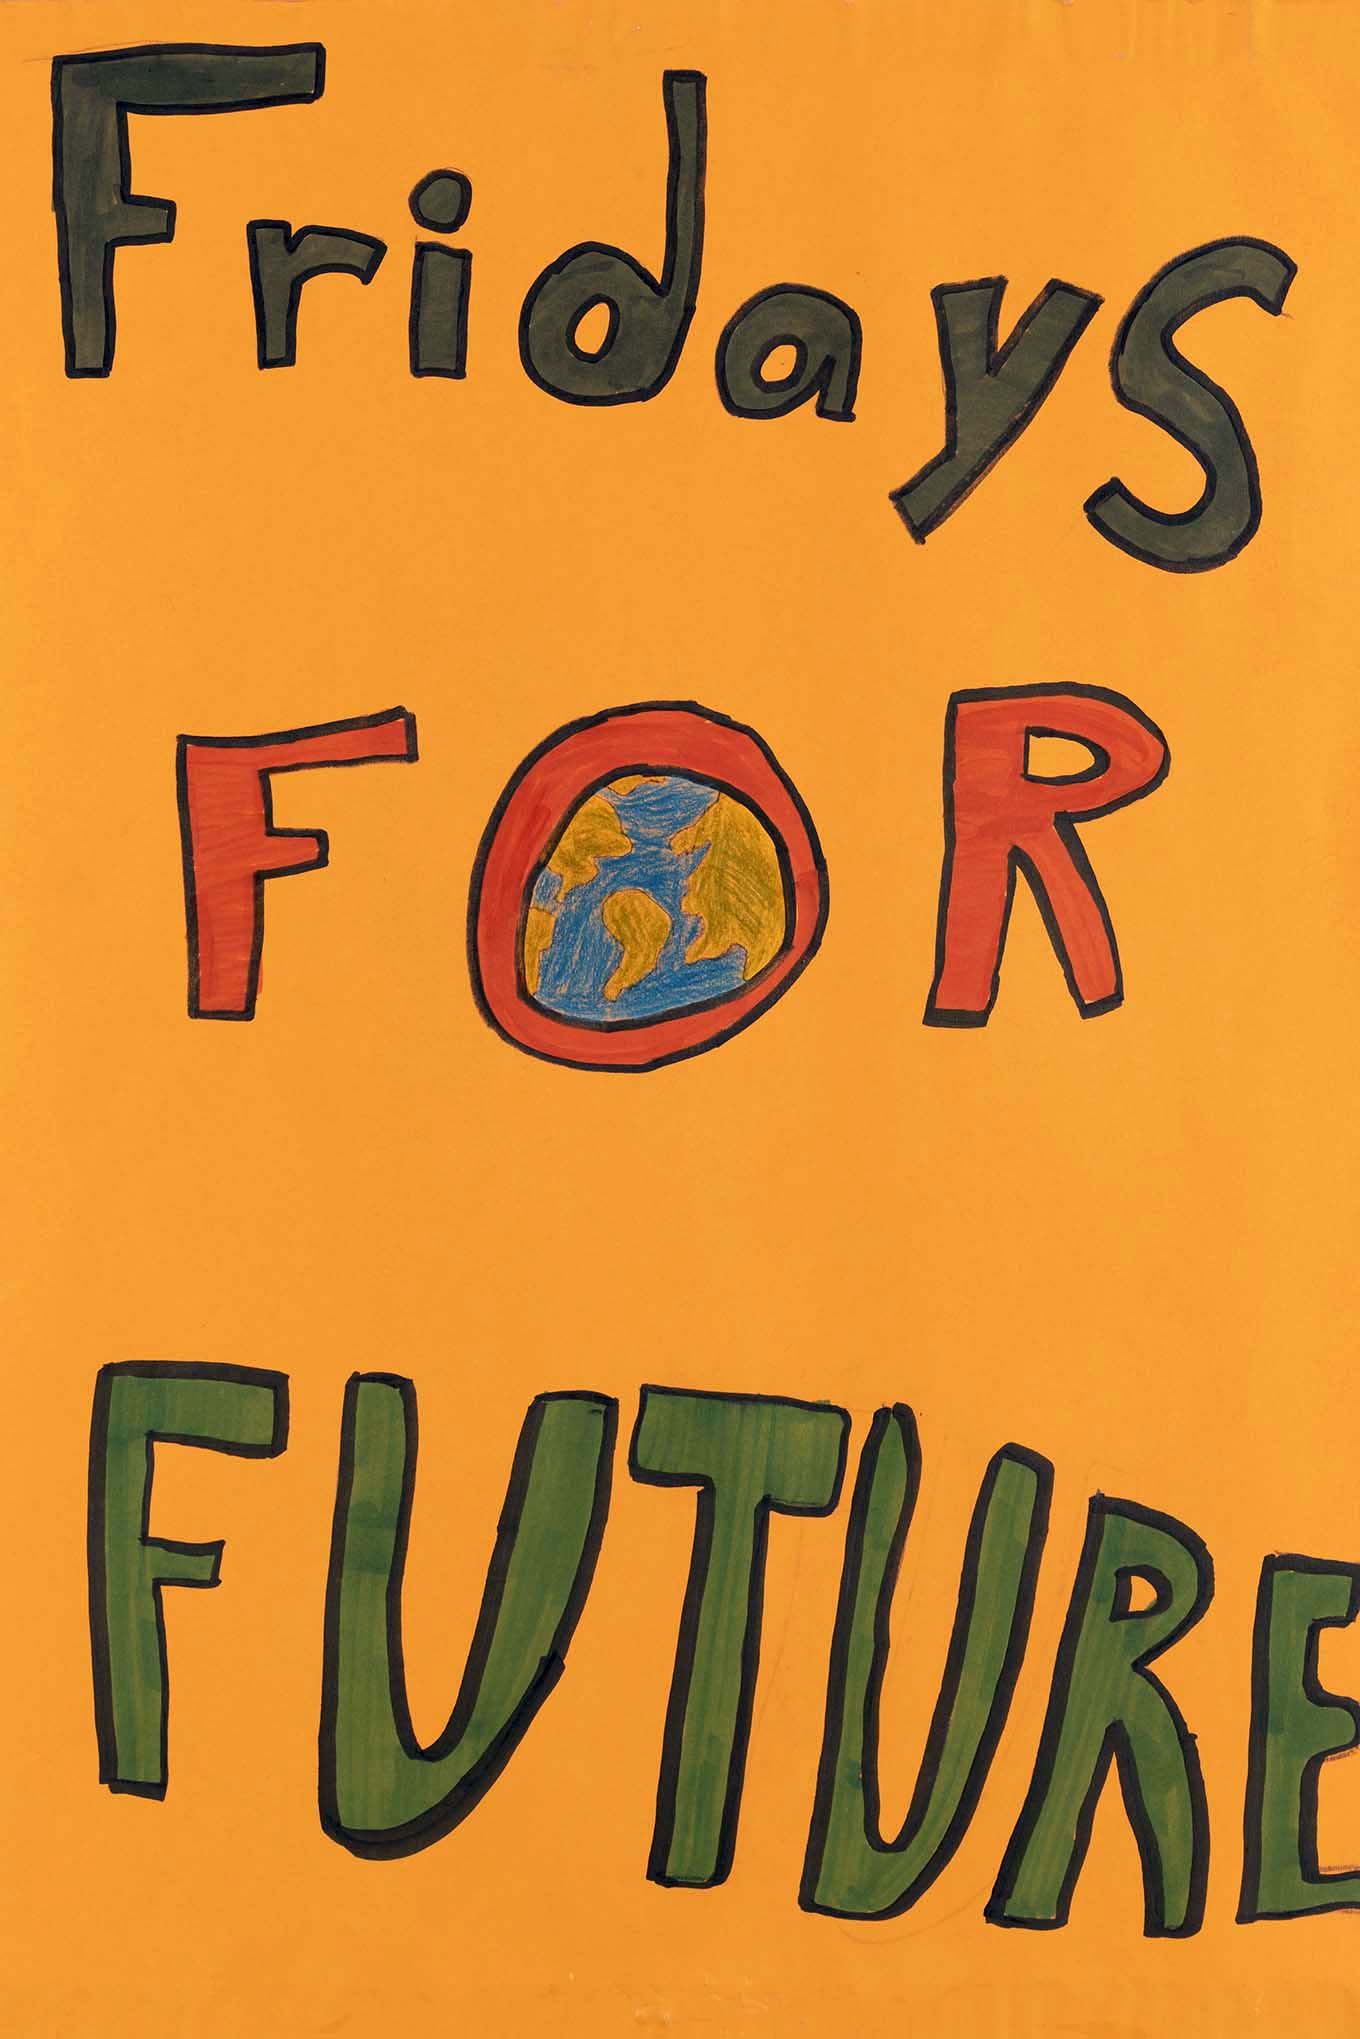 Fridays
FOR
FUTURE